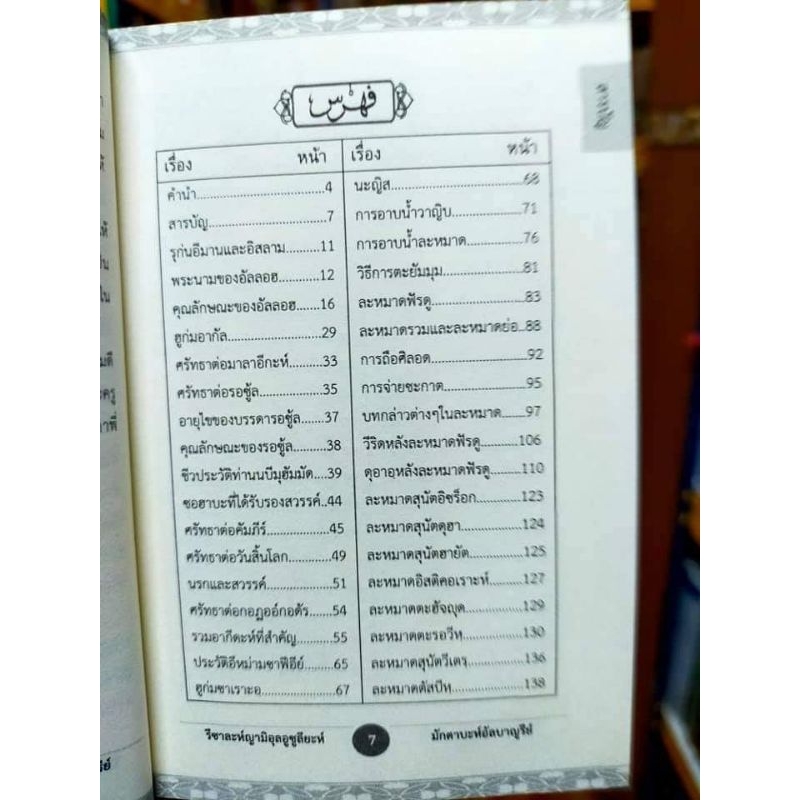 فهرس
สารบัญ
เรื่อง หน้า
คำนำ..............................4
สารบัญ..........................7
รุก่นอีมานและอิสลาม........11
พระนามของอัลลอฮ..........12
คุณลักษณะของอัลลอฮ.......16
ฮูก่มอากัล......................29
ศรัทธาต่อมาลาอีกะห์........33
ศรัทธาต่อรอซู้ล...............35
อายุไขของบรรดารอซู้ล.....37
คุณลักษณะของรอซู้ล........38
ชีวประวัติท่านนบีมุฮัมมัด....39
ซอฮาบะที่ได้รับรองสวรรค์..44
ศรัทธาต่อคัมภีร์..............45
ศรัทธาต่อวันสิ้นโลก.........49
นรกและสวรรค์................51
ศรัทธาต่อกอฎออ์กอดัร......54
รวมอากีดะห์ที่สำคัญ.........55
ประวัติอีหม่ามชาฟีอีย์.......65
ฮูก่มซาเราะอ...................67
เรื่อง หน้า
นะญิส............................68
การอาบน้ำวาญิบ..............71
การอาบน้ำละหมาด...........76
วิธีการตะยัมมุม...............81
ละหมาดฟัรดู...................83
ละหมาดรวมและละหมาดย่อ..88
การถือศิลอด....................92
การจ่ายซะกาต..................95
บทกล่าวต่างๆในละหมาด.....97
วีริดหลังละหมาดฟัรดู........106
ดุอาอฺหลังละหมาดฟัรดู......110
ละหมาดสุนัตอิชร็อก.........123
ละหมาดสุนัตดุฮา.............124
ละหมาดสุนัตฮายัต...........125
ละหมาดอิสติคอเราะห์.......127
ละหมาดตะฮัจญุด.............129
ละหมาดตะรอวีหฺ..............130
ละหมาดสุนัตวีเตรฺ...........136
ละหมาดตัสบีหฺ.................138
รีซาละห์ญามิอุลอูซูลียะห์ 7 มักตาบะห์อัลบาญูรีย์